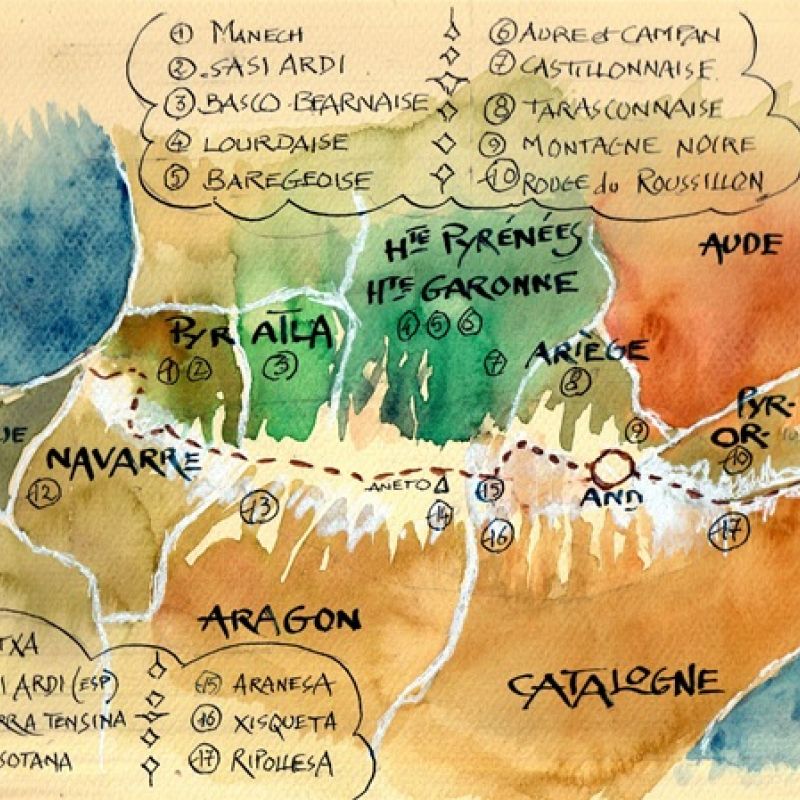 ① MANECH
② SASI ARDI
③ BASCO BÉARNAISE
④ LOURDAISE
⑤ BAREGEOISE
⑥ AURE et CAMPAN
⑦ CASTILLONNAISE
⑧ TARASCONNAISE
⑨ MONTAGNE NOIRE
⑩ ROUGE du ROUSSILLON
HTE PYRÉNÉES
HTE GARONNE
④ ⑤ ⑥
⑦
AUDE
PYR ATLA
① ②
③
ARIÈGE
⑧
⑨
PYR-
OR-
⑩
NAVARRE
⑫
⑬
ANETO
⑭
⑮
⑯
AND
⑰
ARAGON
CATALOGNE
TXA
I ARDI (ESP)
RRA TENSINA
SOTANA
⑮ ARANESA
⑯ XISQUETA
⑰ RIPOLLESA